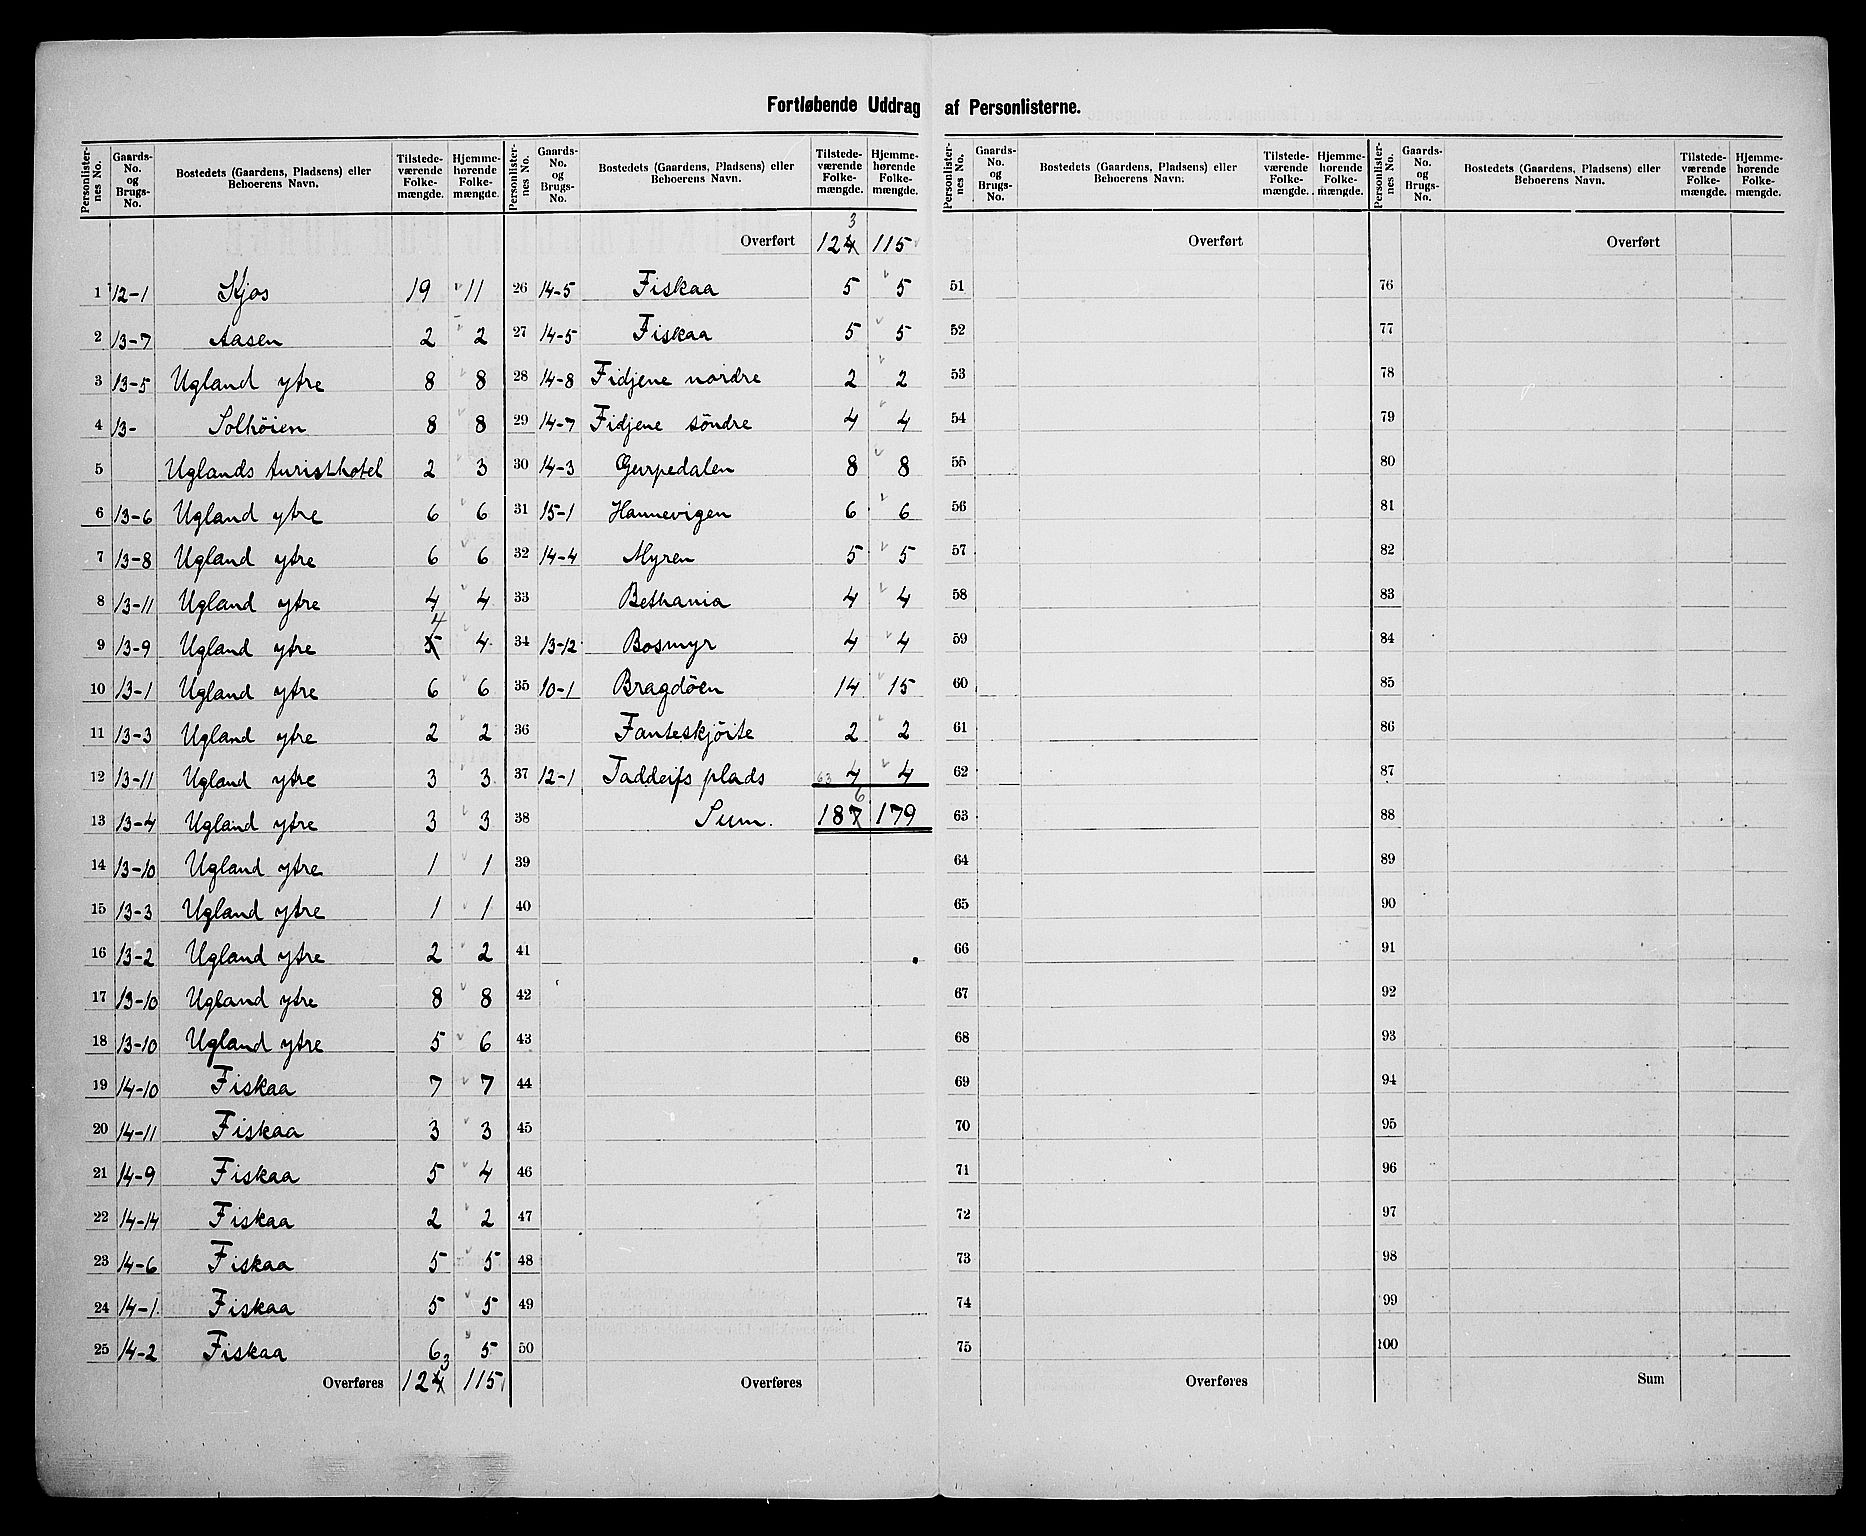 Fortløbende Uddrag af Personlisterne.
Personlisternes No. | Gaards-No. og Brugs-No. | Bostedets (Gaardens, Pladsens) eller Beboerens Navn. | Tilstedeværende Folkemængde. | Hjemmehørende Folkemængde.
1 12-1 Kjos 19 11
2 13-7 Aasen 2 2
3 13-5 Ugland ytre 8 8
4 13- Solhöien 8 8
5 Uglands turisthotel 2 3
6 13-6 Ugland ytre 6 6
7 13-8 Ugland ytre 6 6
8 13-11 Ugland ytre 4 4
9 13-9 Ugland ytre 5 4 4
10 13-1 Ugland ytre 6 6
11 13-3 Ugland ytre 2 2
12 13-11 Ugland ytre 3 3
13 13-4 Ugland ytre 3 3
14 13-10 Ugland ytre 1 1
15 13-3 Ugland ytre 1 1
16 13-2 Ugland ytre 2 2
17 13-10 Ugland ytre 8 8
18 13-10 Ugland ytre 5 6
19 14-10 Fiskaa 7 7
20 14-11 Fiskaa 3 3
21 14-9 Fiskaa 5 4
22 14-14 Fiskaa 2 2
23 14-6 Fiskaa 5 5
24 14-1 Fiskaa 5 5
25 14-2 Fiskaa 6 5
Overføres 124 3 115
Personlisternes No. | Gaards-No. og Brugs-No. | Bostedets (Gaardens, Pladsens) eller Beboerens Navn. | Tilstedeværende Folkemængde. | Hjemmehørende Folkemængde.
Overført 124 3 115
26 14-5 Fiskaa 5 5
27 14-5 Fiskaa 5 5
28 14-8 Fidjene nordre 2 2
29 14-7 Fidjene söndre 4 4
30 14-3 Gurpedalen 8 8
31 15-1 Hannevigen 6 6
32 14-4 Myren 5 5
33 Bethania 4 4
34 13-12 Bosmyr 4 4
35 10-1 Bragdöen 14 15
36 Fanteskjöite 2 2
37 12-1 Taddeifs plads 63 4 4
38 Sum. 187 6 179
39
40
41
42
43
44
45
46
47
48
49
50
Overføres
Personlisternes No. | Gaards-No. og Brugs-No. | Bostedets (Gaardens, Pladsens) eller Beboerens Navn. | Tilstedeværende Folkemængde. | Hjemmehørende Folkemængde.
Overført
51
52
53
54
55
56
57
58
59
60
61
62
63
64
65
66
67
68
69
70
71
72
73
74
75
Overføres
Personlisternes No. | Gaards-No. og Brugs-No. | Bostedets (Gaardens, Pladsens) eller Beboerens Navn. | Tilstedeværende Folkemængde. | Hjemmehørende Folkemængde.
Overført
76
77
78
79
80
81
82
83
84
85
86
87
88
89
90
91
92
93
94
95
96
97
98
99
100
Sum